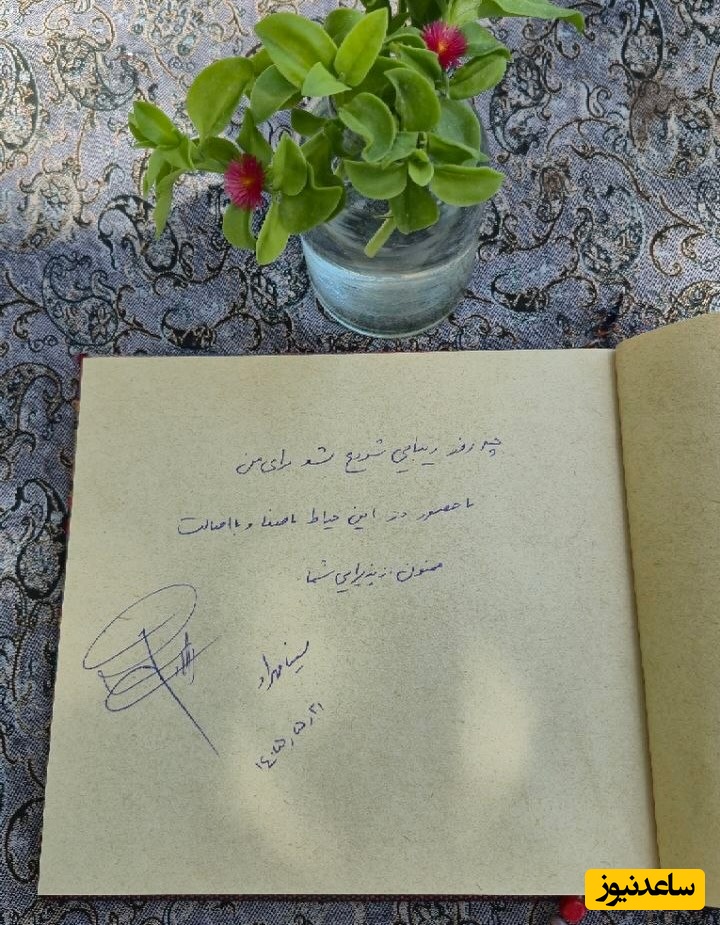 چه روز زیبایی شروع شد برای من
با حضور در این حیاط باصفا و بااصالت
ممنون از پذیرایی شما
سینا مهراد
۱۴۰۳ر۵ر۲۱
ساعدنیوز